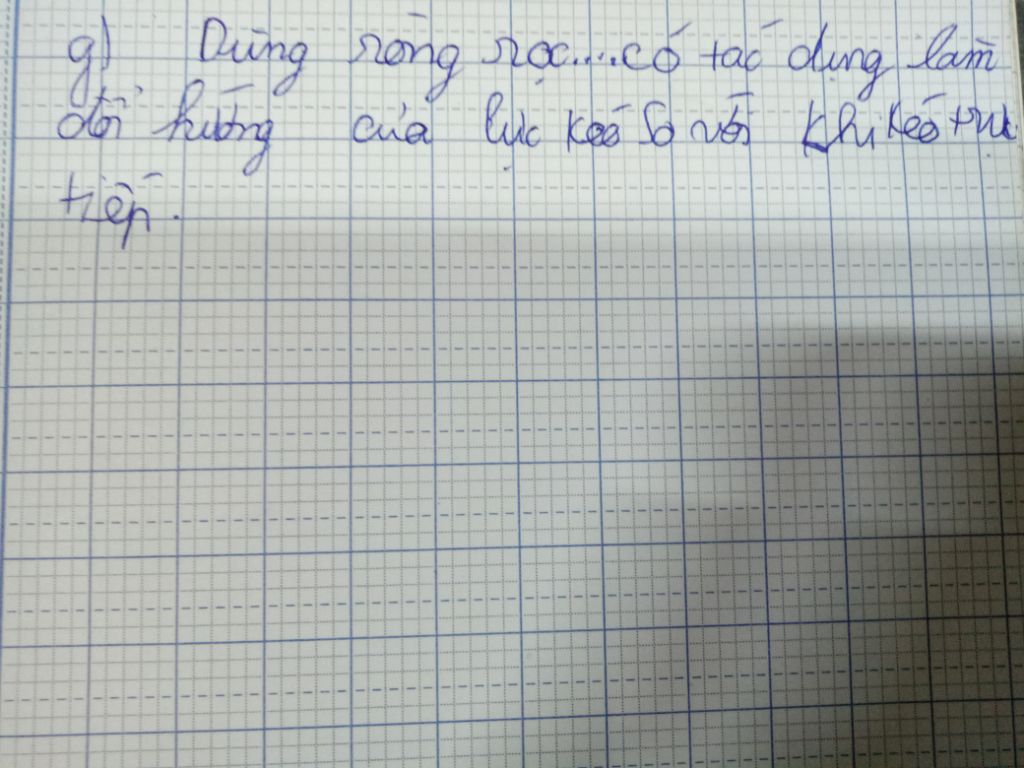 g) Dùng ròng rọc....có tác dụng làm
đổi hướng của lực kéo so với khi kéo trực
tiếp.